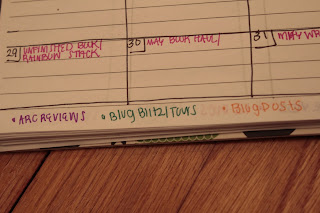 29 UNFINISHED BOOK/
RAINBOW STACK
30 MAY BOOK HAUL/
31 MAY WR
• ARC REVIEWS • Blug Blitz/Tours • Blug Posts